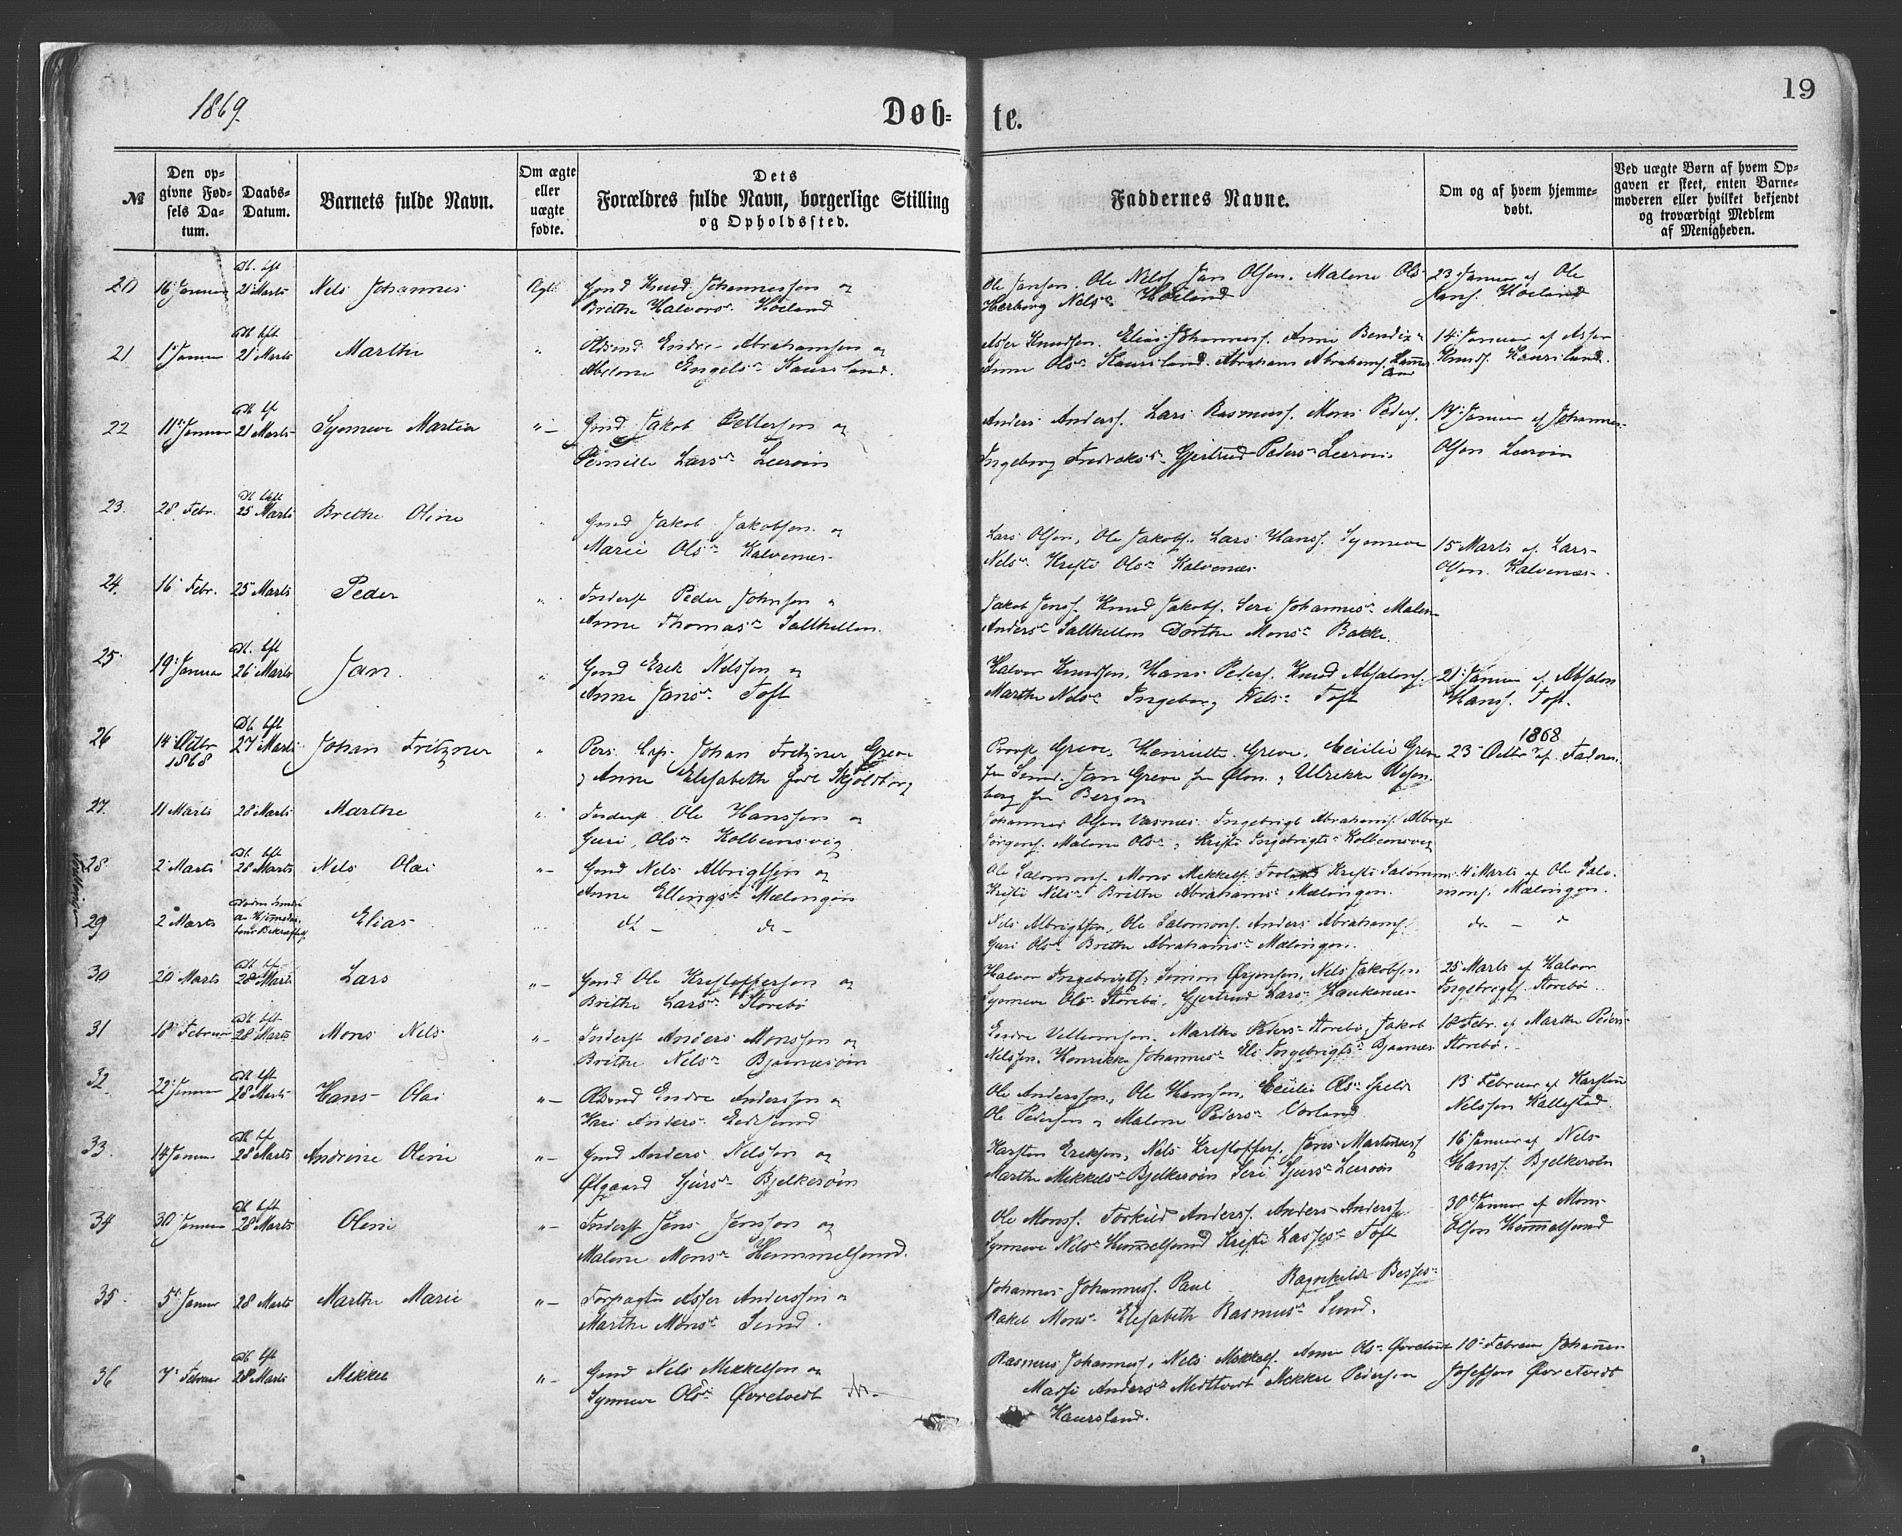 19
1869.
Døb=
te.
№
Den op-
givne Fød-
sels Da-
tum.
Daabs-
Datum.
Barnets fulde Navn.
Om ægte
eller
uægte
fødte.
Dets
Forældres fulde Navn, borgerlige Stilling
og Opholdssted.
Faddernes Navne.
Om og af hvem hjemme-
døbt.
Ved uægte Børn af hvem Op-
gaven er skeet, enten Barne-
moderen eller hvilket bekjendt
og troværdigt Medlem
af Menigheden.
20 16 Januar 21 Marts Nels Johannes Ægte Gmd Knud Johannessen og
Brithe Halvors Høeland
Ole Jansen. Ole Nelss. Jan Olsen. Malene Ols
Herborg Nels Høeland
23 Januar af Ole
Jans. Høeland
21 1 Januar 21 Marts Marthe Endre Abrahamsen og
Abelone Engels Haursland.
Asser Knudsen. Elias Johannes. Anne Bendix
Anne Ols Haursland. Abraham Abrahams.
14 Januar af Asser
Knuds. Haursland.
22 11 Januar 21 Marts Synneve Martia Gmd Jakob Pettersen og
Pernille Lars Leeröin
Anders Anders. Lars Rasmus. Mons Peders.
Ingeborg Fredriks Gjertrud Peders Leeröin
17 Januar af Johannes
Olsen Leeröin
23. 28 Febr. 25 Marts Brethe Oline Gmd Jakob Jakobsen og
Marie Ols Kalvenæs
Lars Olsen, Ole Jakobs. Lars Hans. Synneve
Nels Kristi Ols Kalvenæs
15 Marts af Lars
Olsen Kalvenæs.
24. 16 Febr. 25 Marts Peder Inderst Peder Johnsen
Anne Thomas Salthellen.
Jakob Jens. Knud Jakobs. Seri Johannes Malene
Anders Salthellen Dorthe Mons Bakke.
25. 19 Januar 26 Marts Jan. Gmd Erik Nelssen og
Anne Jans Toft
Halvor Knudsen, Hans Peders. Knud Absalons.
Marthe Nels Ingeborg Nels Toft
21 Januar af Absalon
Hans. Toft.
26 14 Octbr
1868
27 Marts Johan Fritzner Pers. Cap. Johan Fritzner Greve
og Anne Elisabeth født Skjoldborg
Provst Greve, Henriette Greve, Cecilie Greve
fra Sund. Jan Greve fra Ølen, Ulrikke
fra Bergen
1868
23 Octbr af Faderen
27. 11 Marts 28 Marts Marthe Inderst Ole Hanssen og
Guri Ols Kolbeensvig
Johannes Olsen Væsnæs. Ingebrigt Abrahams. Albrigt
Jörgens. Malene Ols, Kristi Ingebrigts Kolbeensvig
28 2 Marts 28 Marts Nels Olai Gmd Nels Albrigtsen og
Anne Ellings Mælingen
Ole Salomons. Mons Mikkels. Kristi Salomons
Kristi Nels Brithe Abrahams Mælingen.
4 Marts af Ole Salo-
mons. Mælingen.
Tvillinger
29 2 Marts Elias do do
Nels Albrigtsen, Ole Salomons. Anders Abrahams.
Guri Ols Brethe Abrahams Mælingen.
do
30 20 Marts 28 Marts Lars Gmd Ole Kristoffersen og
Brithe Lars Storebø
Halvor Ingebrigts. Simon Ørjansen, Nels Jakobsen
Synneve Ols Storebø, Gjertrud Lars Haukenæs
25 Marts af Halvor
Ingebrigts. Storebø.
31 18 Februar 28 Marts Mons Nels Inderst Anders Monssen og
Brithe Nels Bjørnæsöin
Endre Villumsen. Marthe Peders Storebø, Jakob
Nelssen. Henrikke Johannes Eli Ingebrigts Bjørnæs
18 Febr. af Marthe Peders
Storebø.
32 22 Januar 28 Marts Hans Olai Endre Anderssen og
Kari Anders
Ole Anderssen, Ole Hansen, Cecilie Ols Speld
Ole Pedersen og Malene Peders
13 Februar af Karsten
Nelssen Kallestad.
33. 14 Januar 28 Marts Andrine Oline Gmd Anders Nelssen og
Ølgaard Sjurs Bjelkeröin
Karsten Eriksen, Nels Kristoffers. Jens Martinus
Marthe Mikkels Bjelkeröin Seri Sjurs Leeröin
16 Januar af Nels
Hans. Bjelkeröin
34 30 Januar 28 Marts Oline Inderst Jens Jenssen og
Malene Mons Hemmelsund.
Ole Mons. Torkild Anders. Anders Anders.
Synneve Nels Hemmelsund Kristi Lasses Toft
30 Januar af Mons
Olsen Hemmelsund
35 5 Januar 28 Marts Marthe Marie Forpagter Asser Anderssen og
Marthe Mons Sund.
Johannes Johannes. Paul Ragnhilde Besses
Rakel Mons Elisabeth Rasmus Sund.
36 7 Februar 28 Marts Mikkel Gmd Nels Mikkelsen og
Synneve Ols Øvretvedt
Rasmus Johannes, Nels Mikkels. Anne Ols Øvretvedt
Madsi Anders Midttvedt Mikkel Pedersen
Haursland.
10 Februar Johannes
Josefsen Øvretvedt